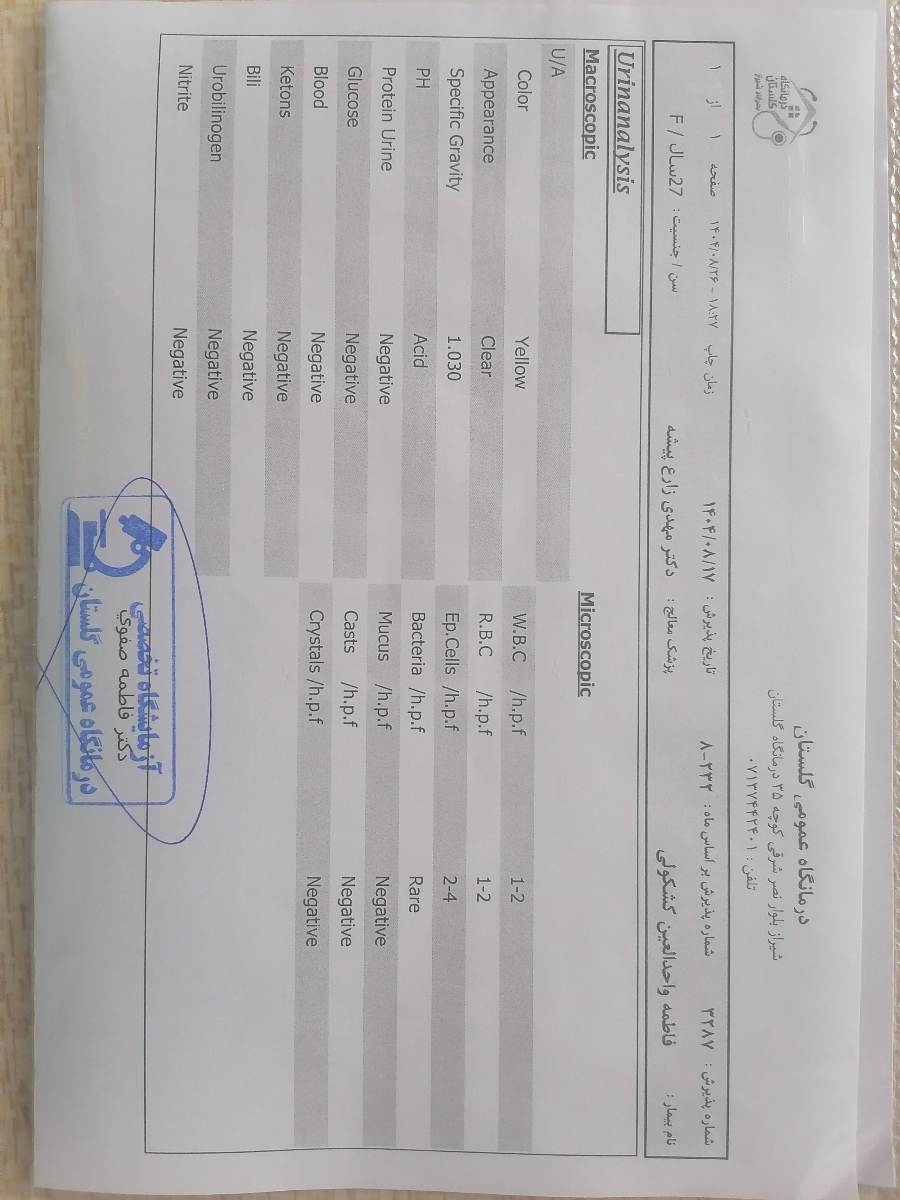 درمانگاه
گلستان
درمانگاه عمومی گلستان
شیراز بلوار نصر شرقی کوچه ۳۵ درمانگاه گلستان
تلفن : ۰۷۱۳۷۴۴۲۴۰۱
شماره پذیرش : ۳۲۸۷ شماره پذیرش بر اساس ماه: ۸-۲۳۲ تاریخ پذیرش : ۱۴۰۴/۰۸/۱۷ زمان چاپ ۱۸:۲۷ - ۱۴۰۴/۰۸/۲۶ صفحه ۱ از ۱
نام بیمار : فاطمه واحدالعین کشکولی پزشک معالج : دکتر مهدی زارع پیشه سن / جنسیت : 27سال / F
Urinanalysis
Macroscopic Microscopic
U/A
Color Yellow W.B.C /h.p.f 1-2
Appearance Clear R.B.C /h.p.f 1-2
Specific Gravity 1.030 Ep.Cells /h.p.f 2-4
PH Acid Bacteria /h.p.f Rare
Protein Urine Negative Mucus /h.p.f Negative
Glucose Negative Casts /h.p.f Negative
Blood Negative Crystals /h.p.f Negative
Ketons Negative
Bili Negative
Urobilinogen Negative
Nitrite Negative
آزمایشگاه تخصصی
دکتر فاطمه صفوی
درمانگاه عمومی گلستان